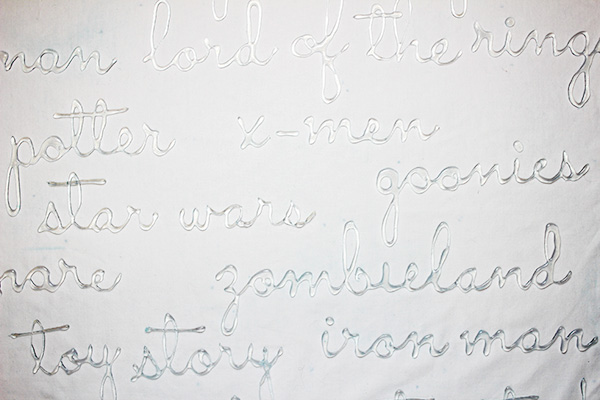 man lord of the rings
potter x-men
goonies
star wars
mare zombieland
toy story iron man